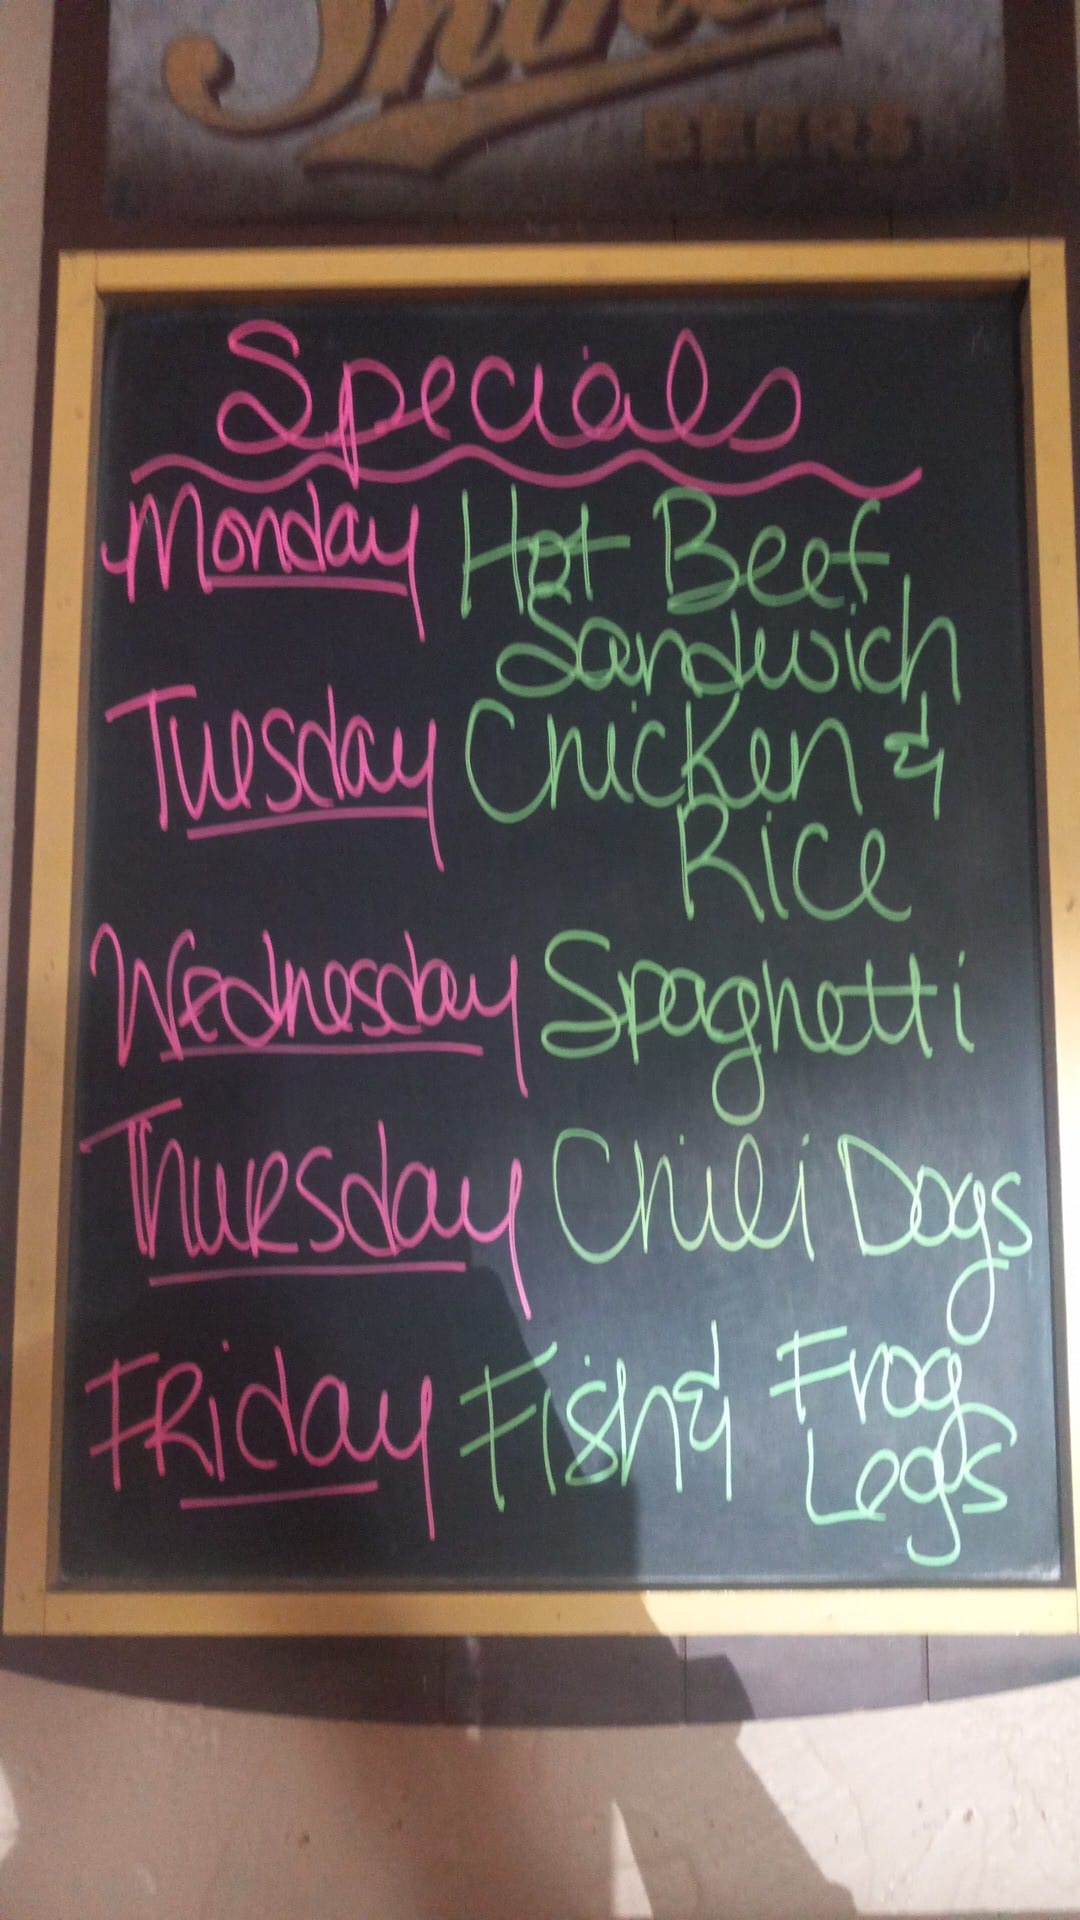 BEERS
Specials
Monday Hot Beef
Sandwich
Tuesday Chicken &
Rice
Wednesday Spaghetti
Thursday Chili Dogs
Friday Fish & Frog
Legs